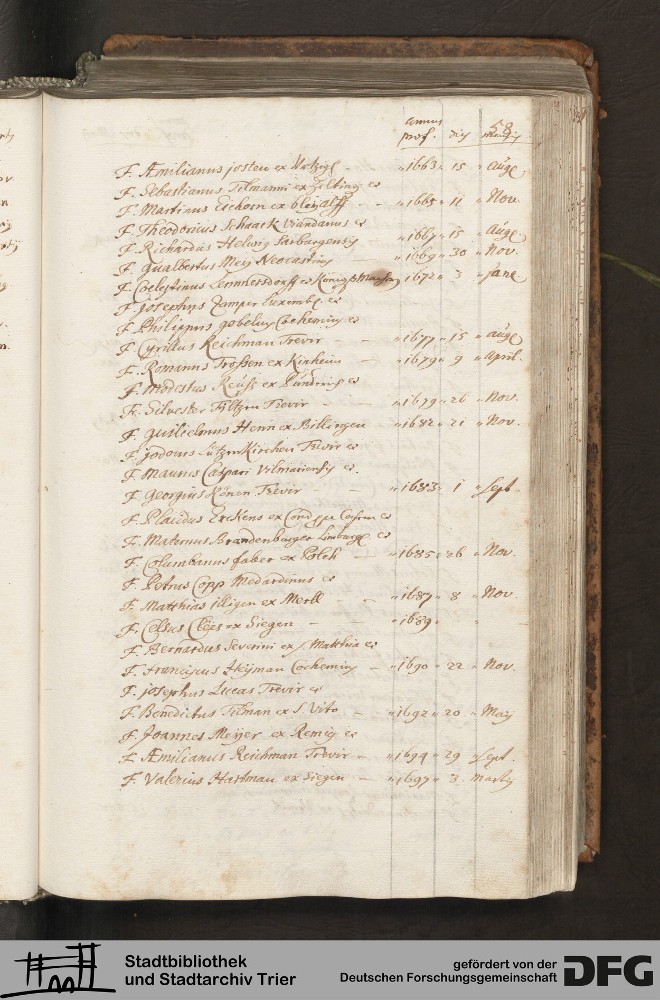 58
annus
prof. dies mensis
F. Æmilianus josten ex " 1663 " 15 " aug.
F. Sebastianus Tilmanni ex Zelting et
F. Martinus Eichorn ex bleialff - " 1665 " 11 " Nov.
F. Theodoricus Schaack Viandanus et
F. Richardus Helwig Sarburgensis " 1667 " 15 " aug.
F. Gualbertus Meij Neocastiny - " 1669 " 30 " Nov.
F. Coelestinus Sonnersdorff ex 1672 " 3 " jan.
F. josephus Zamper Luxemb. et
F. Philippus gobelius Cochemiens et
F. Cyrillus Reichman Trevir - " 1677 " 15 " aug
F. Romanus Trossen ex Kinheim - " 1679 " 9 " April.
F. Modestus Reuss ex Pünderich et
F. Silvester Filtzen Trevir - " 1679 " 26 " Nov.
F. guilielmus Henn ex Billingen " 1682 " 21 " Nov.
F. jodocus Lützenkirchen Trevir et
F. Maurus Caspari Vilmariensis et
F. Georgius Könen Trevir - - " 1683 " 1 " Sept.
F. Placidus Erckens ex Cochem et
F. Maternus Brandenburger Limburg. et
F. Columbanus faber ex Polch - " 1685 " 26 " Nov.
F. Petrus Copp Medardinus et
F. Matthias illigen ex Merll - " 1687 " 8 " Nov.
F. Celsus Clöes ex Siegen - " 1689 " "
F. Bernardus Severini ex S. Matthia et
F. Franciscus Heijman Cochemiens - " 1690 " 22 " Nov.
F. josephus Lucas Trevir et
F. Benedictus Tilman ex S. Vito - " 1692 " 20 " Maij
F. Joannes Meijer ex Remig et
F. Æmilianus Reichman Trevir - " 1694 " 29 " Sept.
F. Valerius Hartman ex Siegen - " 1697 " 3. Martij
Stadtbibliothek
und Stadtarchiv Trier
gefördert von der
Deutschen Forschungsgemeinschaft
DFG